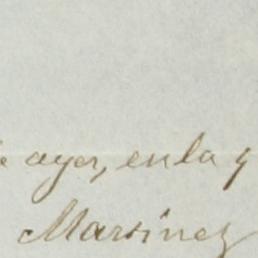 ayer, en la q
Martinez